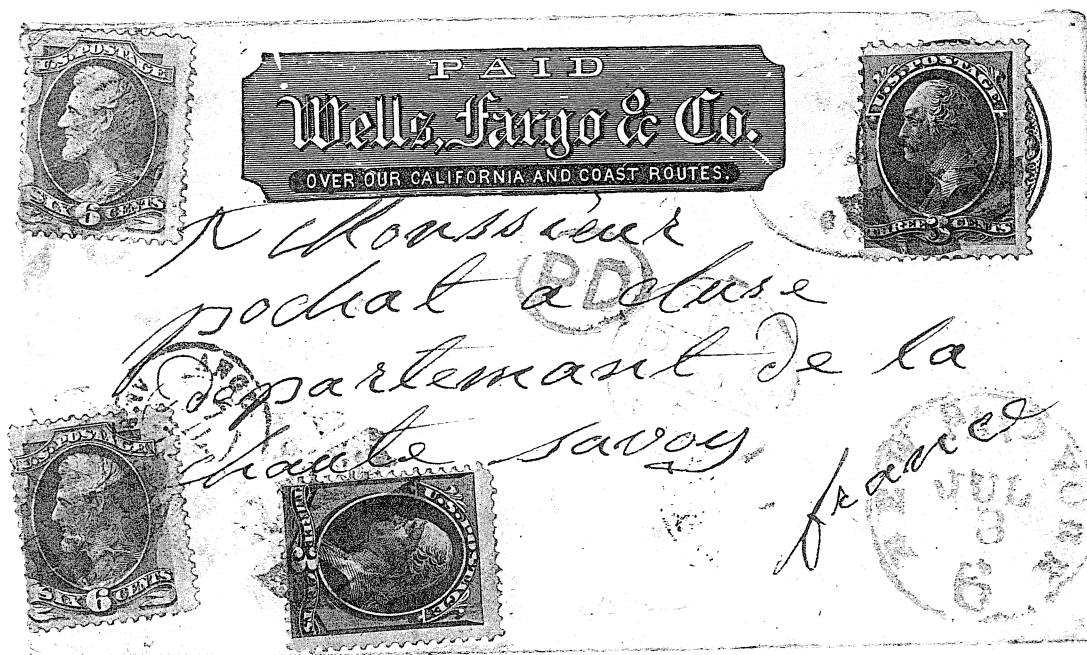 U.S. POSTAGE
SIX 6 CENTS
PAID
Wells, Fargo & Co.
OVER OUR CALIFORNIA AND COAST ROUTES.
U.S. POSTAGE
THREE 3 CENTS
Monssieur
PD
pochat a cluse
departemant de la
haute savoy
france
U.S. POSTAGE
SIX 6 CENTS
U.S. POSTAGE
THREE 3 CENTS
JUL
8
6